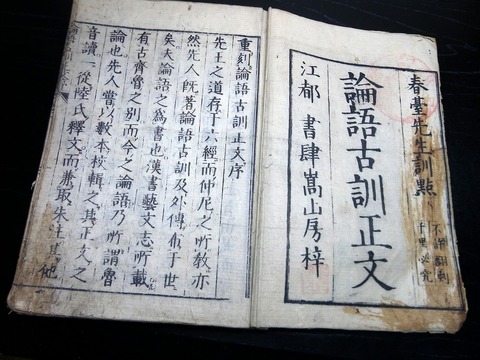 春臺先生訓點
不許翻刻
千里必究
論語古訓正文
江都 書肆嵩山房梓
重刻論語古訓正文序
先王之道存于六經而仲尼之所教亦
然先人既著論語古訓及外傳布于世
矣夫論語之為書也漢書藝文志所載
有古齊魯之別而今之論語乃所謂魯
論也先人嘗以數本校輯之其正文之
音讀一從陸氏釋文而兼取朱注其他